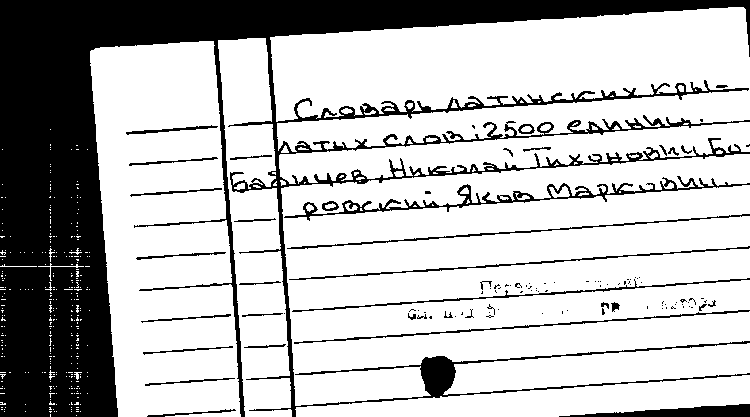 Словарь латинских кры=
латых слов: 2500 единиц.
Бабичев, Николай Тихонович, Бо-
ровский, Яков Маркович.